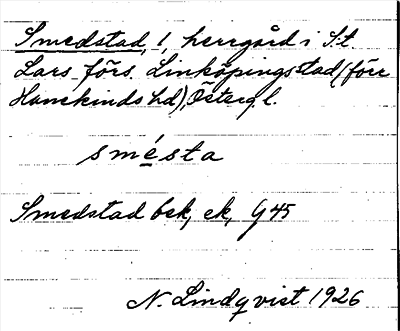 Smedstad, 1, herrgård i S:t
Lars förs. Linköpings stad (förr
Hanekinds hd), Östergl.
smésta
Smedstad bek, ek, G 45
N. Lindqvist 1926